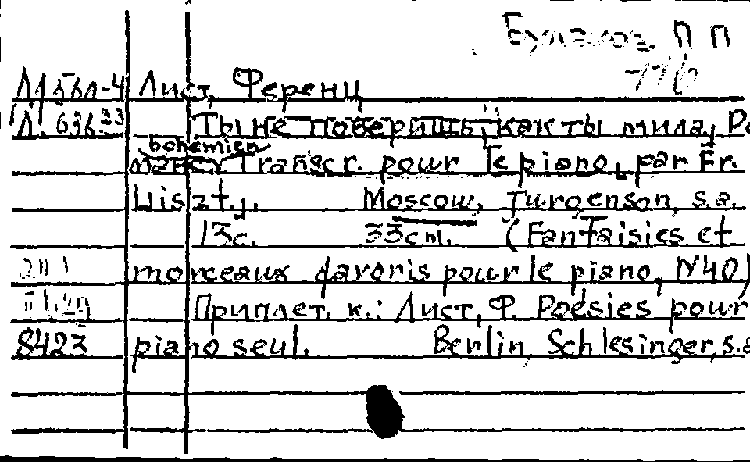 Булахов, П П
Лист, Ференц
Л. 636.33 Ты не поверишь, как ты мила,
bohemien
Transcr. pour le piano, par Fr.
Liszt. Moscow, Jurgenson, s.a.
13c. 33cm. (Fantaisies et
morceaux favoris pour le piano, N40)
Приплет. к.: Лист, Ф. Poésies pour
8423 piano seul. Berlin, Schlesinger, s.a